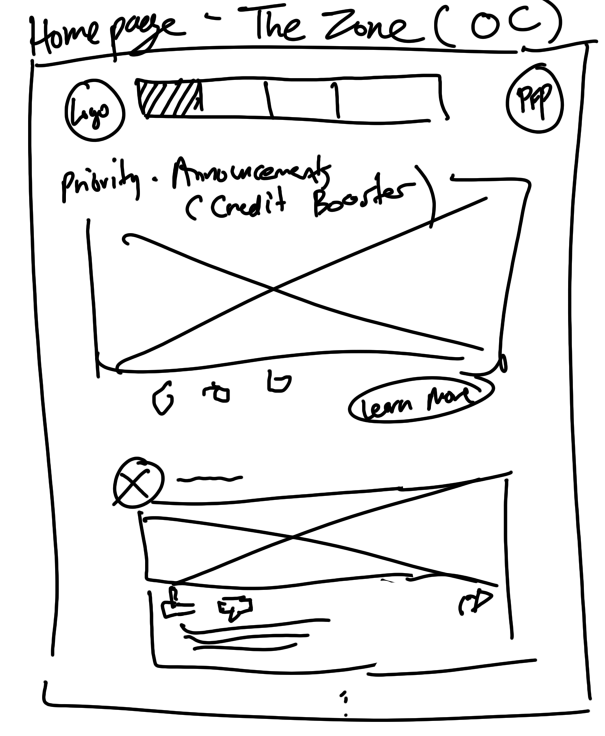 Homepage - The Zone (OC)
Logo
PFP
Priority. Announcements
(Credit Booster)
Learn More